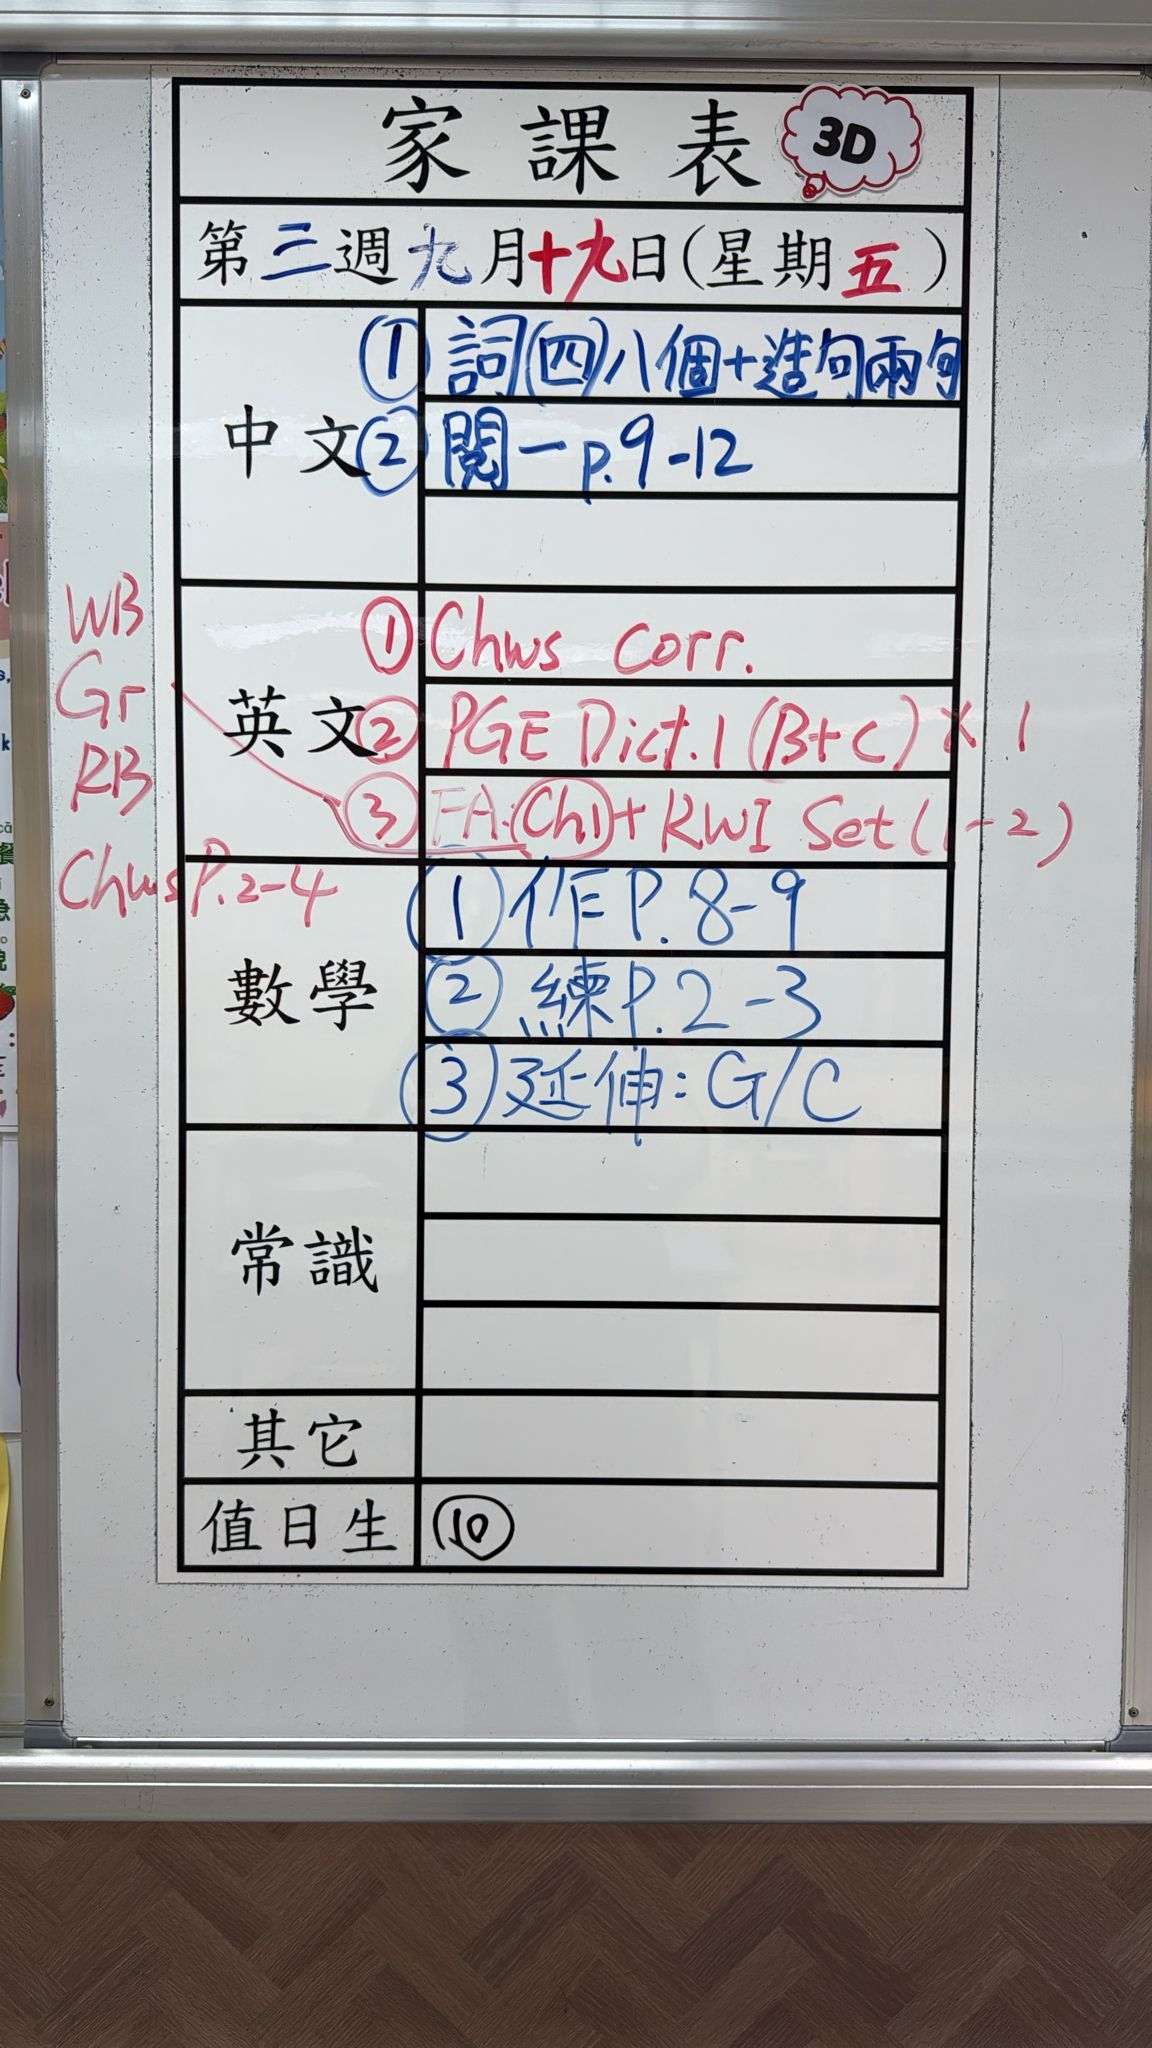 家課表 3D
第三週九月十九日(星期五)
中文
① 詞(四)八個+造句兩句
② 閱一 p.9-12
英文
① Chws corr.
② PGE Dict.1 (B+C) x 1
③ FA:(Ch1)+ RWI Set (1-2)
WB
Gr
RB
Chws P.2-4
數學
① 作P.8-9
② 練P.2-3
③ 延伸:G/C
常識
其它
值日生 ⑩